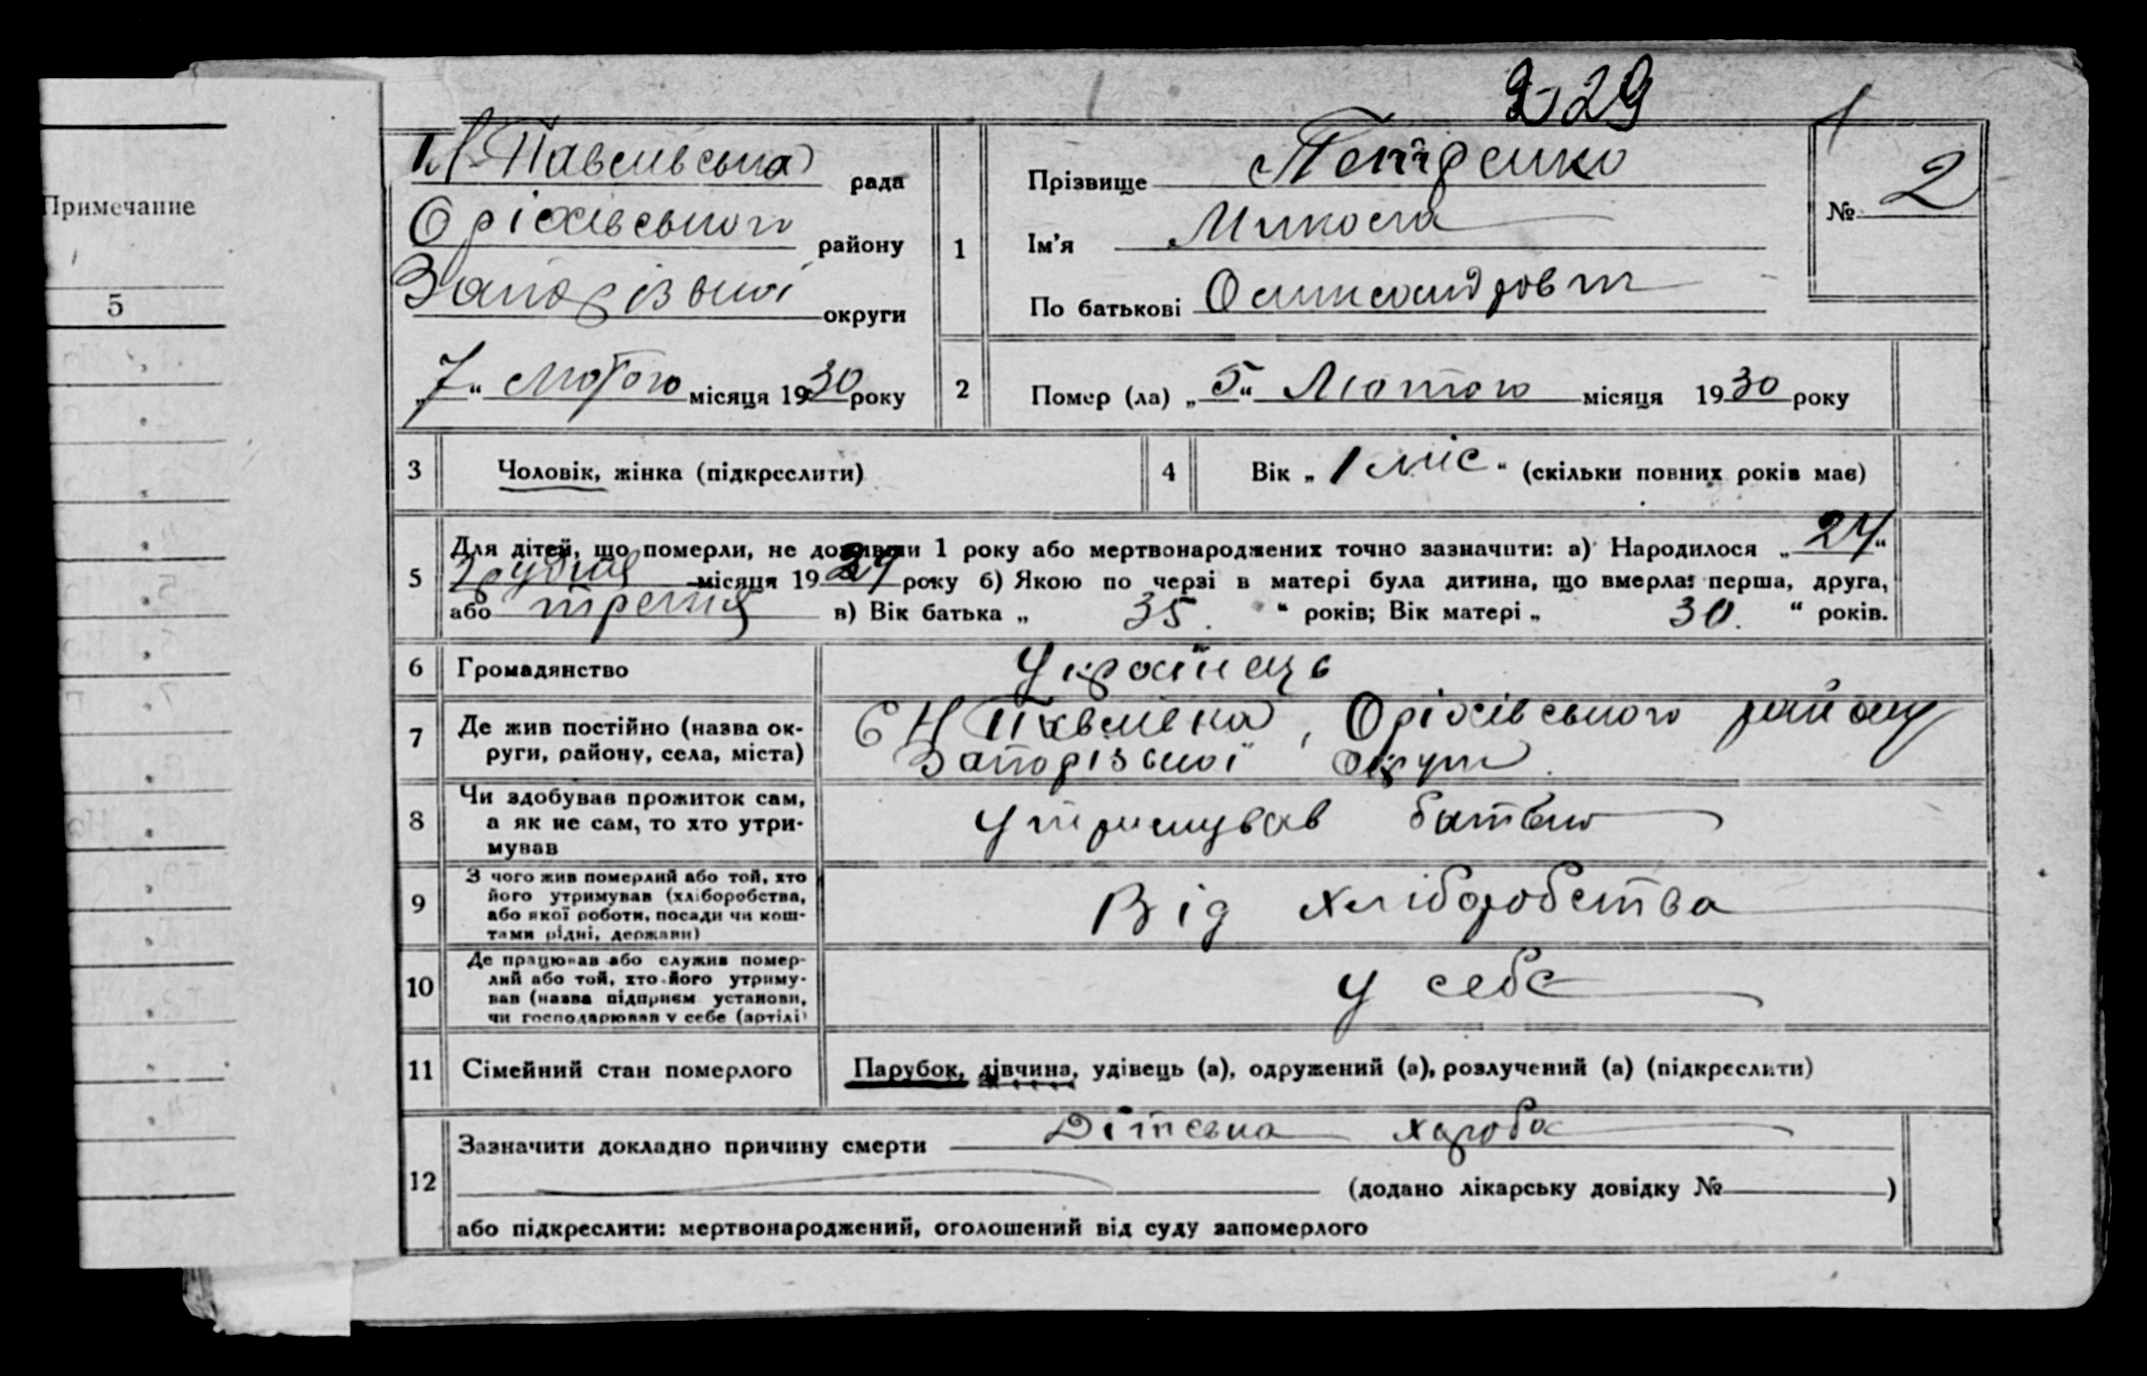 229
Примечание
5
Н-Павлівська рада
Оріхівського району
Запорізької округи
„7“ лютого місяця 1930 року
1
Прізвище Петренко
Ім'я Микола
По батькові Олександрович
№ 2
2
Помер (ла) „5“ Лютого місяця 1930 року
3 Чоловік, жінка (підкреслити)
4 Вік „1 міс“ (скільки повних років має)
5 Для дітей, що померли, не доживши 1 року або мертвонароджених точно зазначити: а) Народилося „24“
Грудня місяця 1929 року б) Якою по черзі в матері була дитина, що вмерла: перша, друга,
або третя в) Вік батька „35.“ років; Вік матері „30.“ років.
6 Громадянство Українець
7 Де жив постійно (назва ок-
руги, району, села, міста)
с Н Павлівка, Оріхівського району
Запорізької округи.
8 Чи здобував прожиток сам,
а як не сам, то хто утри-
мував
утримував батько
9 З чого жив померлий або той, хто
його утримував (хліборобства,
або якої роботи, посади чи кош-
тами рідні, держави)
Від хліборобства
10 Де працював або служив помер-
лий або той, хто його утриму-
вав (назва підприєм установи,
чи господарював у себе (артілі)
у себе
11 Сімейний стан померлого Парубок, дівчина, удівець (а), одружений (а), розлучений (а) (підкреслити)
12 Зазначити докладно причину смерти Дітська хороба
(додано лікарську довідку № )
або підкреслити: мертвонароджений, оголошений від суду запомерлого